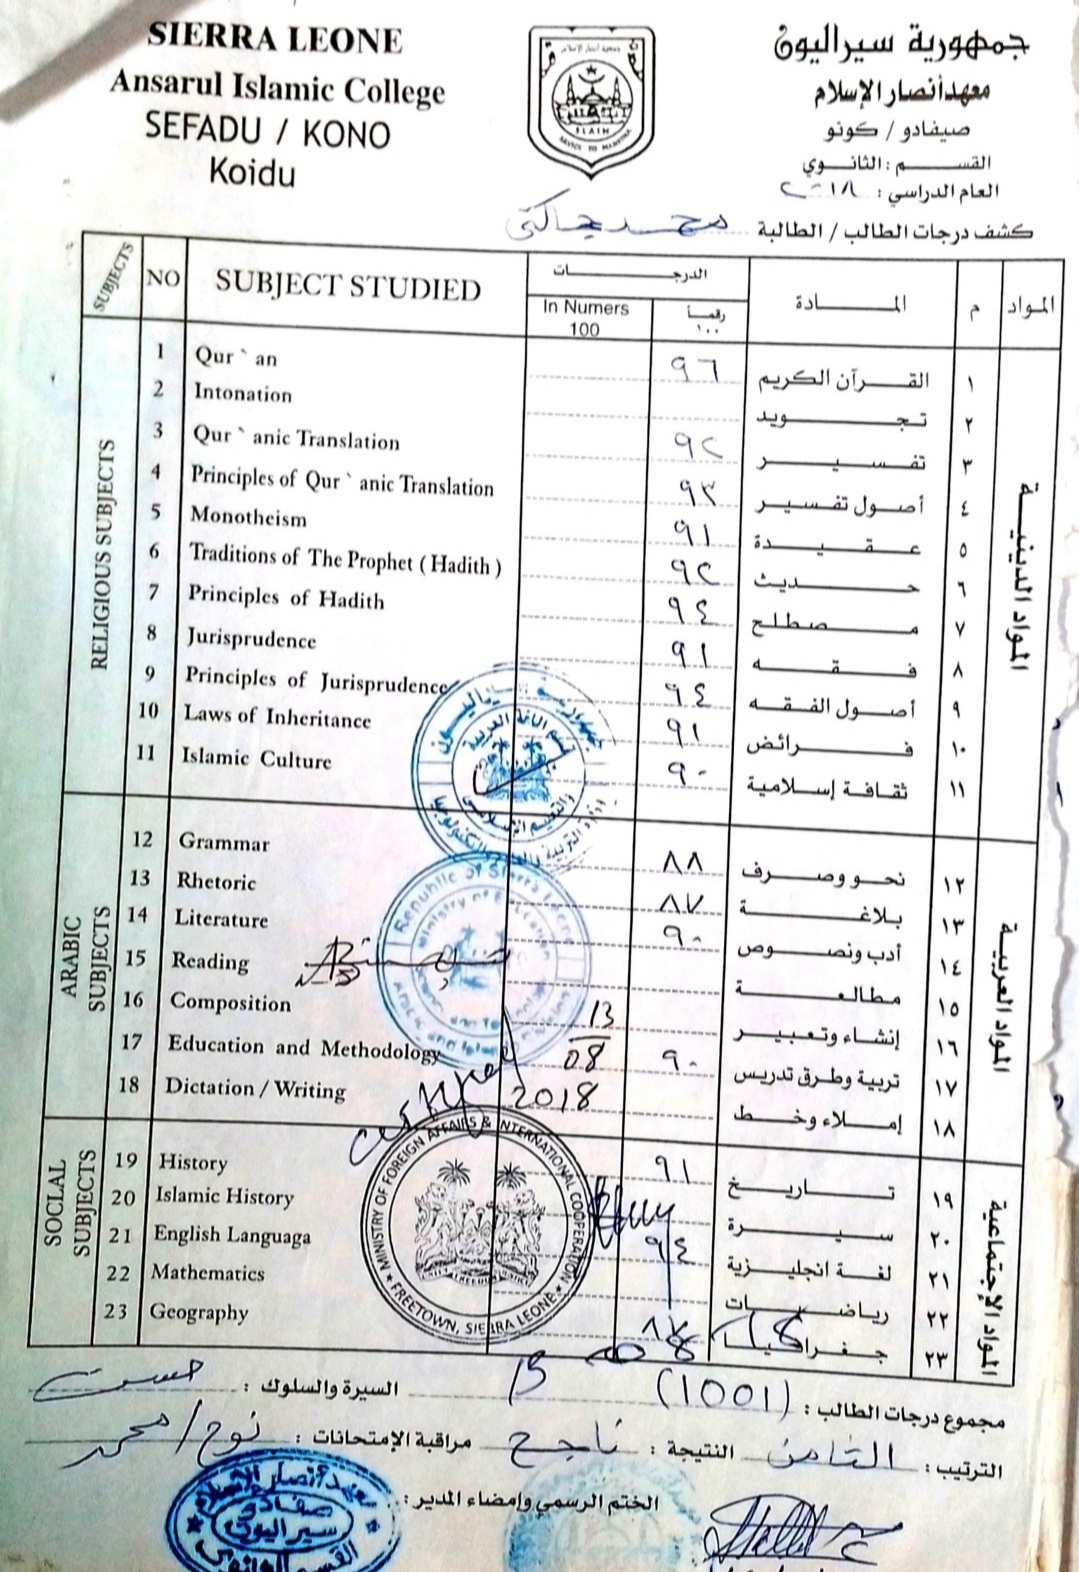 SIERRA LEONE
Ansarul Islamic College
SEFADU / KONO
Koidu
جمهورية سيراليون
معهد أنصار الإسلام
صيفادو / كونو
القسم : الثانوي
العام الدراسي : ٢٠١٨
كشف درجات الطالب / الطالبة محمد جاكتى
SUBJECTS NO SUBJECT STUDIED الدرجات المادة م المواد
In Numers 100 رقماً ١٠٠
RELIGIOUS SUBJECTS
المواد الدينية
1 Qur ` an ٩٦ القرآن الكريم ١
2 Intonation تجويد ٢
3 Qur ` anic Translation ٩٢ تفسير ٣
4 Principles of Qur ` anic Translation ٩٣ أصول تفسير ٤
5 Monotheism ٩١ عقيدة ٥
6 Traditions of The Prophet ( Hadith ) ٩٢ حديث ٦
7 Principles of Hadith ٩٤ مصطلح ٧
8 Jurisprudence ٩١ فقه ٨
9 Principles of Jurisprudence ٩٤ أصول الفقه ٩
10 Laws of Inheritance ٩١ فرائض ١٠
11 Islamic Culture ٩٠ ثقافة إسلامية ١١
ARABIC SUBJECTS
المواد العربية
12 Grammar ٨٨ نحو وصرف ١٢
13 Rhetoric ٨٧ بلاغة ١٣
14 Literature ٩٠ أدب ونصوص ١٤
15 Reading مطالعة ١٥
16 Composition إنشاء وتعبير ١٦
17 Education and Methodology ٩٠ تربية وطرق تدريس ١٧
18 Dictation / Writing إملاء وخط ١٨
13
08
2018
SOCLAL SUBJECTS
المواد الإجتماعية
19 History ٩١ تاريخ ١٩
20 Islamic History سيرة ٢٠
21 English Languaga ٩٤ لغة انجليزية ٢١
22 Mathematics رياضيات ٢٢
23 Geography جغرافيا ٢٣
MINISTRY OF FOREIGN AFFAIRS & INTERNATIONAL COOPERATION
FREETOWN, SIERRA LEONE
Republic of Sierra Leone
مجموع درجات الطالب : (1001) السيرة والسلوك : حسن
الترتيب : الثامن النتيجة : ناجح مراقبة الإمتحانات : نوح / محمد
الختم الرسمي وإمضاء المدير :
معهد أنصار الإسلام
صفادو
سيراليون
القسم الثانوي